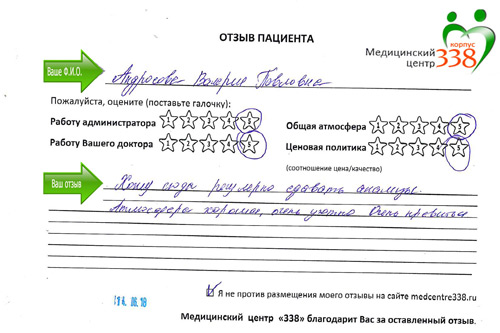 ОТЗЫВ ПАЦИЕНТА
корпус
Медицинский
центр 338
Ваше Ф.И.О.
Андросова Валерия Павловна
Пожалуйста, оцените (поставьте галочку):
Работу администратора 1 2 3 4 5
Общая атмосфера 1 2 3 4 5
Работу Вашего доктора 1 2 3 4 5
Ценовая политика 1 2 3 4 5
(соотношение цена/качество)
Ваш отзыв
Хожу сюды регулярно сдавать анализы.
Атмосфера хорошая, очень уютно Очень нравиться
24.06.18
Я не против размещения моего отзывы на сайте medcentre338.ru
Медицинский центр «338» благодарит Вас за оставленный отзыв.